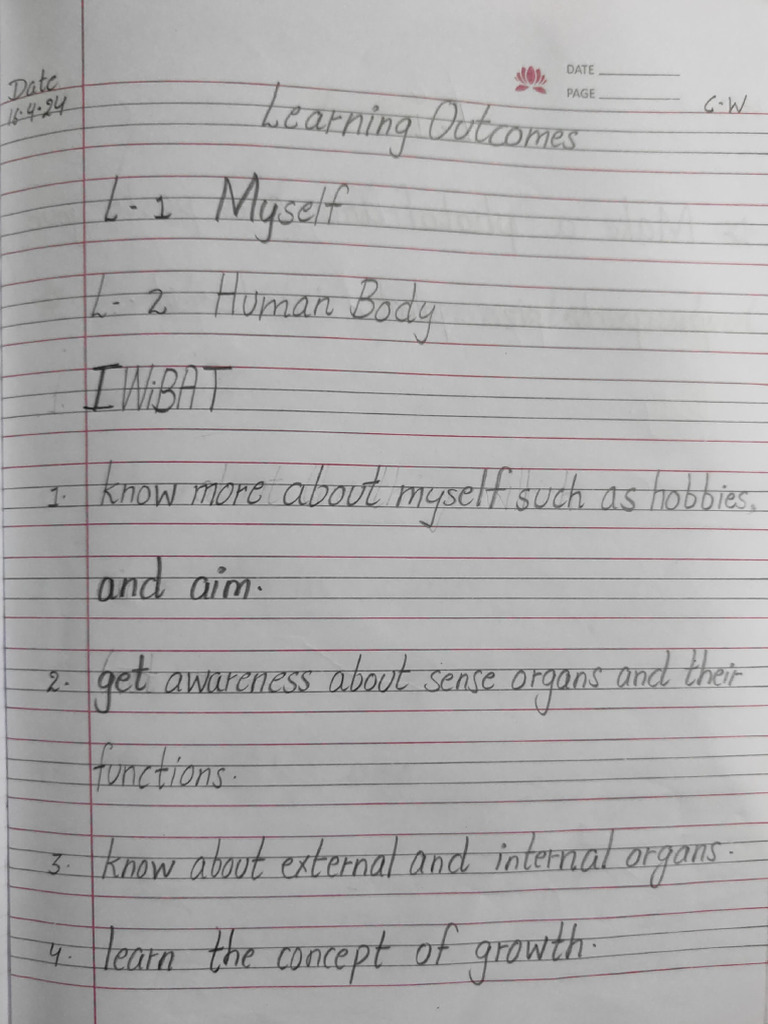 DATE
PAGE
Date
16.4.24
C.W
Learning Outcomes
L-1 Myself
L-2 Human Body
IWiBAT
1. know more about myself such as hobbies,
and aim.
2. get awareness about sense organs and their
functions.
3. know about external and internal organs.
4. learn the concept of growth.